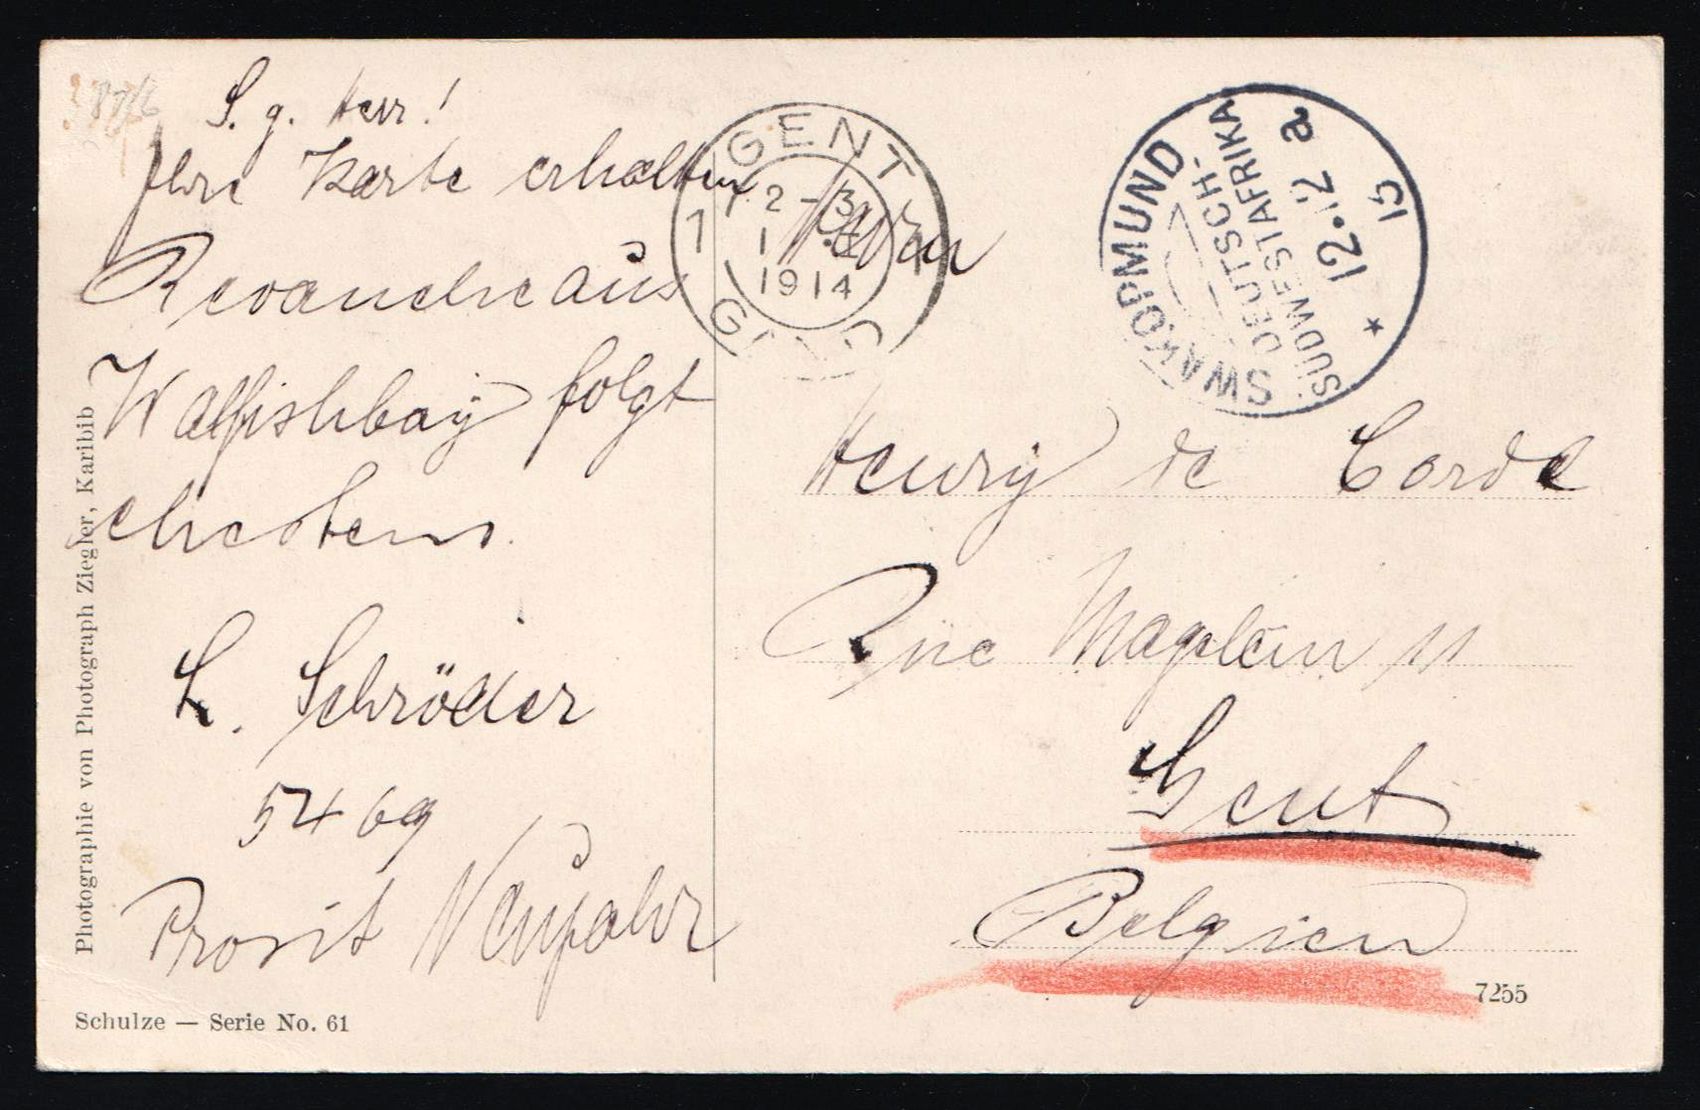 S. g. Herr!
Ihre Karte erhalten
Revanche aus
Walfishbay folgt
ehestens.
L. Schröder
5469
Prosit Neujahr
Photographie von Photograph Ziegler, Karibib
Schulze — Serie No. 61
GENT
1
2-3
1914
SWAKOPMUND
DEUTSCH-
SÜDWESTAFRIKA
12.12 a
13
*
Herrn
Henry de Corde
Rue Magelein 11
Gent
Belgien
7255